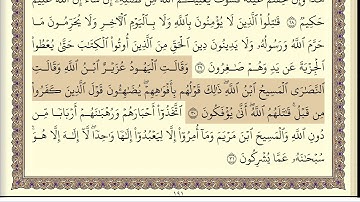 حَكِيمٌ ٢٨ قَٰتِلُوا۟ ٱلَّذِينَ لَا يُؤْمِنُونَ بِٱللَّهِ وَلَا بِٱلْيَوْمِ ٱلْءَاخِرِ وَلَا يُحَرِّمُونَ مَا
حَرَّمَ ٱللَّهُ وَرَسُولُهُۥ وَلَا يَدِينُونَ دِينَ ٱلْحَقِّ مِنَ ٱلَّذِينَ أُوتُوا۟ ٱلْكِتَٰبَ حَتَّىٰ يُعْطُوا۟
ٱلْجِزْيَةَ عَن يَدٍ وَهُمْ صَٰغِرُونَ ٢٩ وَقَالَتِ ٱلْيَهُودُ عُزَيْرٌ ٱبْنُ ٱللَّهِ وَقَالَتِ
ٱلنَّصَٰرَى ٱلْمَسِيحُ ٱبْنُ ٱللَّهِ ذَٰلِكَ قَوْلُهُم بِأَفْوَٰهِهِمْ يُضَٰهِـُٔونَ قَوْلَ ٱلَّذِينَ كَفَرُوا۟
مِن قَبْلُ قَٰتَلَهُمُ ٱللَّهُ أَنَّىٰ يُؤْفَكُونَ ٣٠ ٱتَّخَذُوٓا۟ أَحْبَارَهُمْ وَرُهْبَٰنَهُمْ أَرْبَابًا مِّن
دُونِ ٱللَّهِ وَٱلْمَسِيحَ ٱبْنَ مَرْيَمَ وَمَآ أُمِرُوٓا۟ إِلَّا لِيَعْبُدُوٓا۟ إِلَٰهًا وَٰحِدًا لَّآ إِلَٰهَ إِلَّا هُوَ
سُبْحَٰنَهُۥ عَمَّا يُشْرِكُونَ ٣١
١٩١